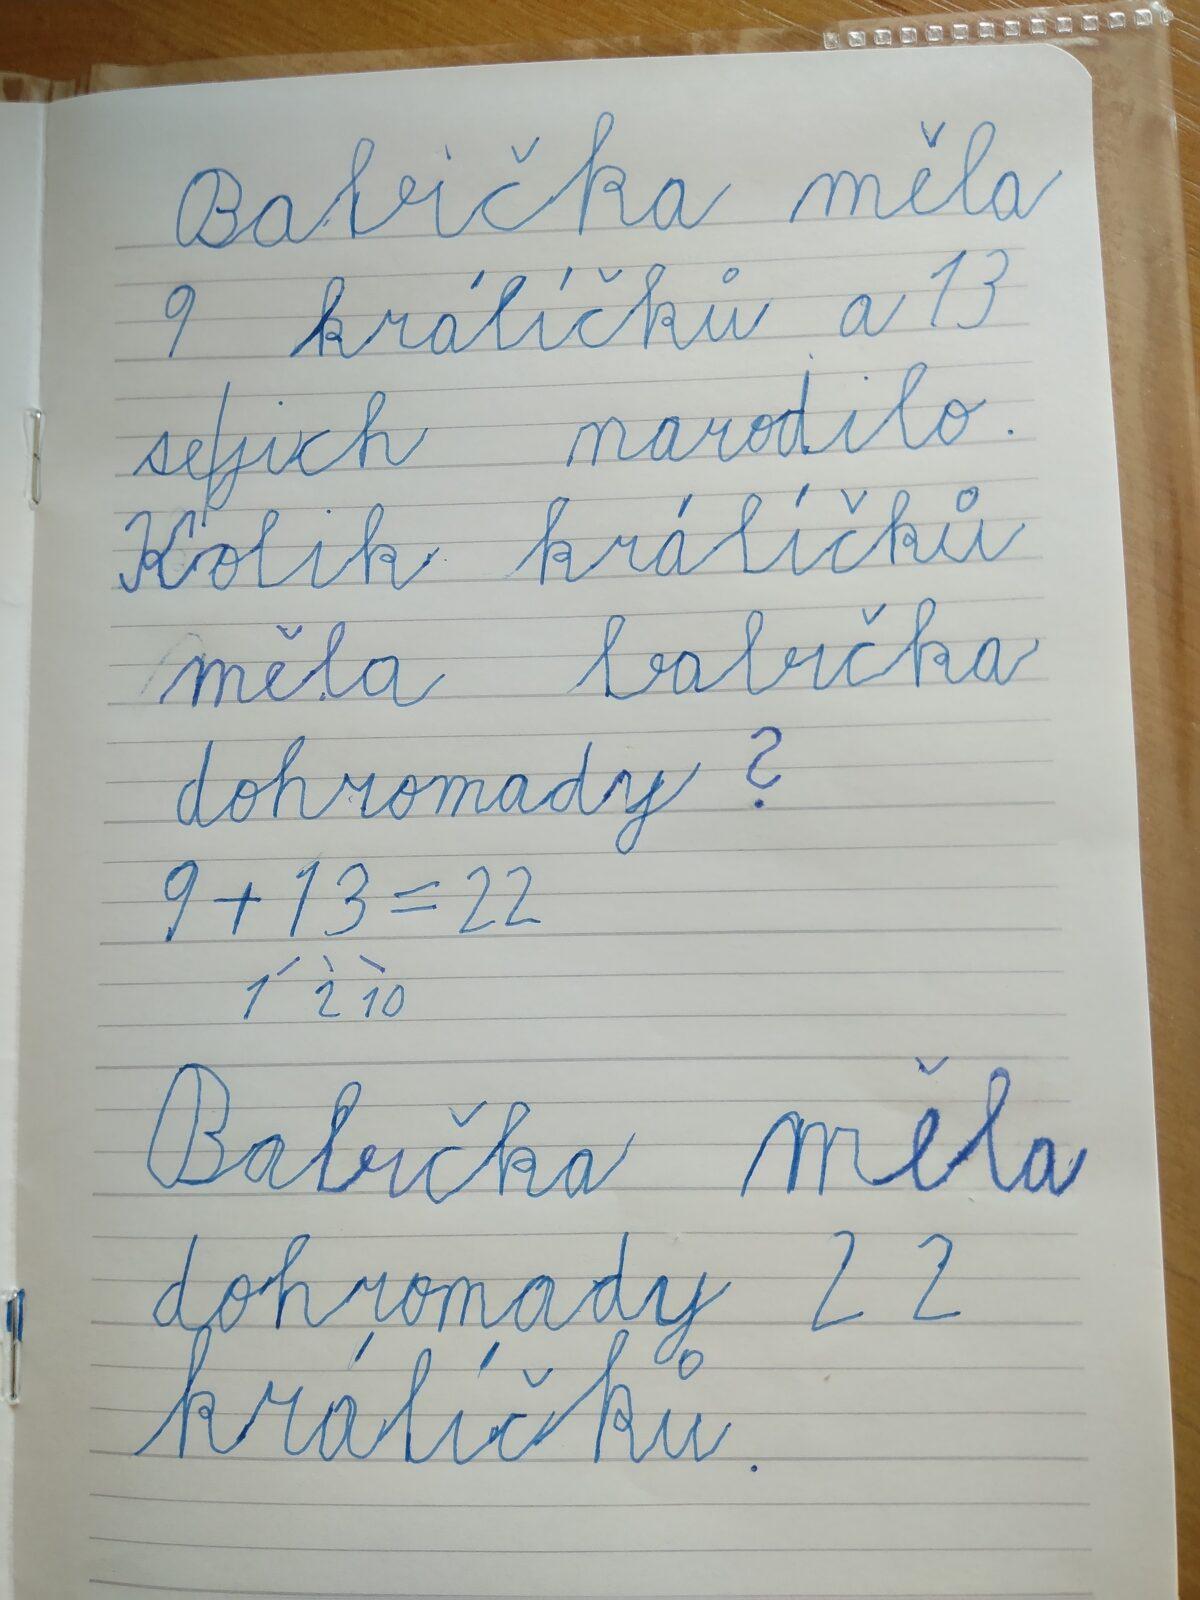 Babička měla
9 králíčků a 13
se jich narodilo.
Kolik králíčků
měla babička
dohromady?
9+13=22
1 2 10
Babička měla
dohromady 22
králíčků.